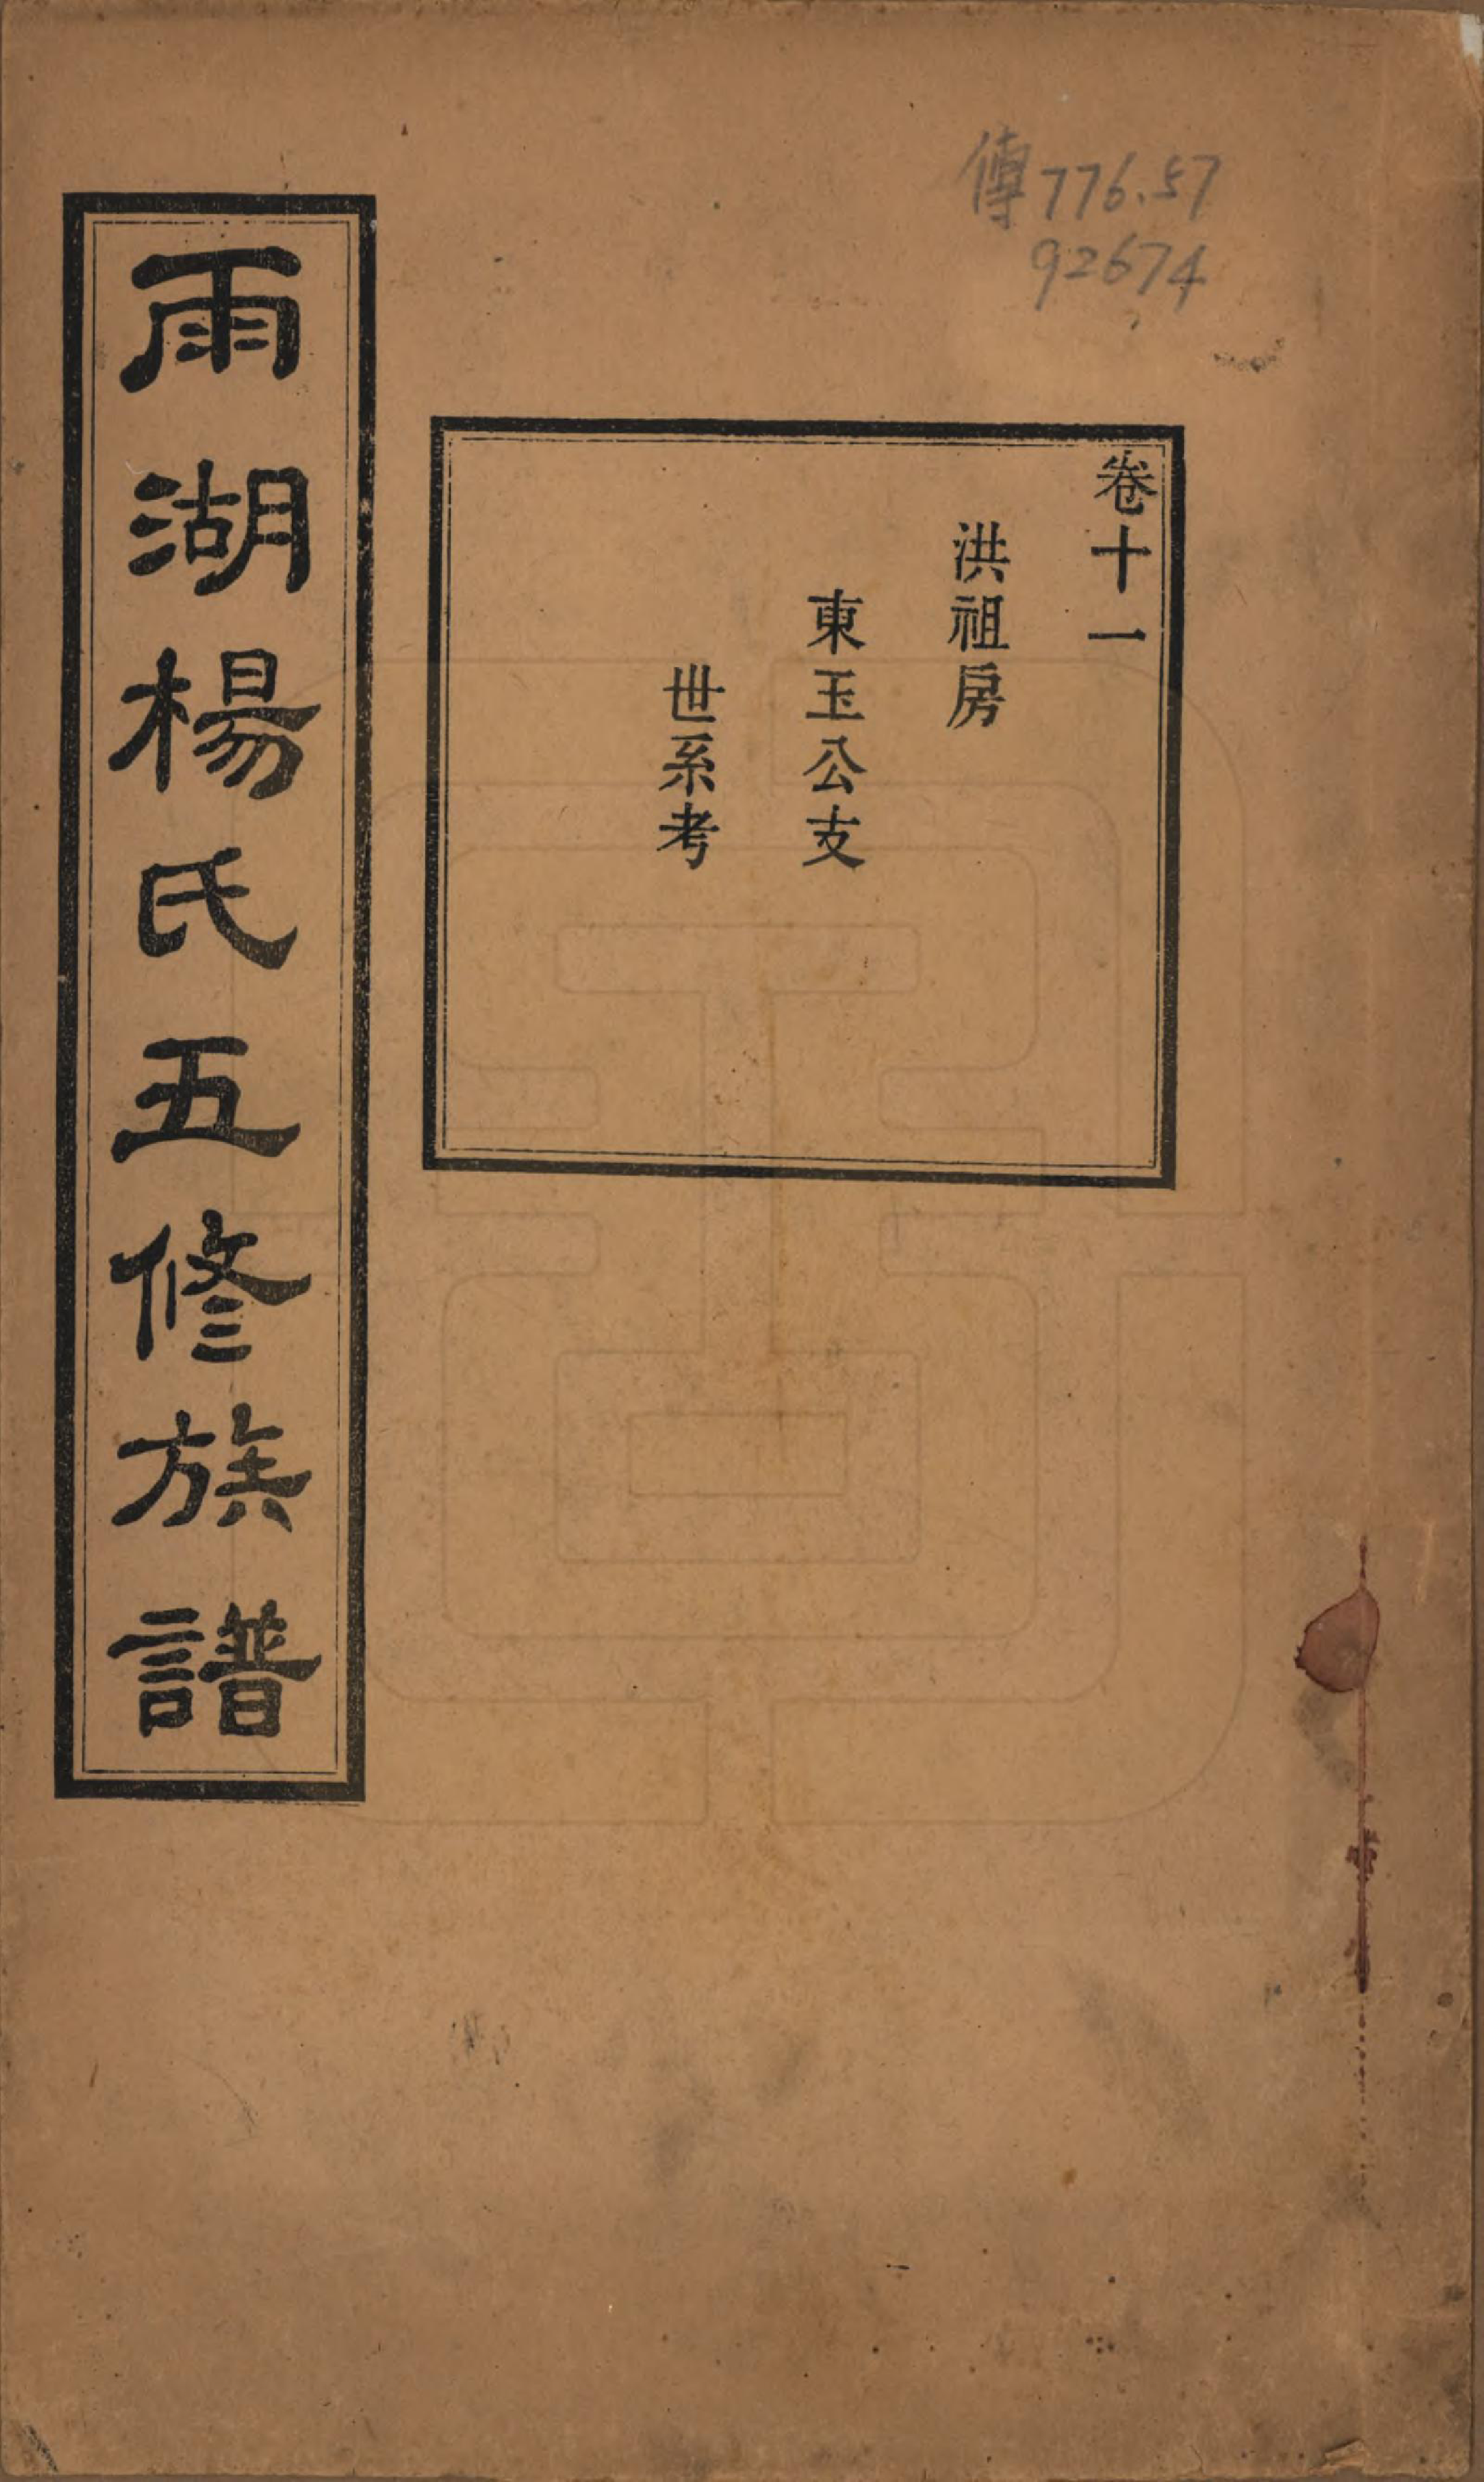 傳776.57
92674
卷十一
洪祖房
東玉公支
世系考
雨湖楊氏五修族譜